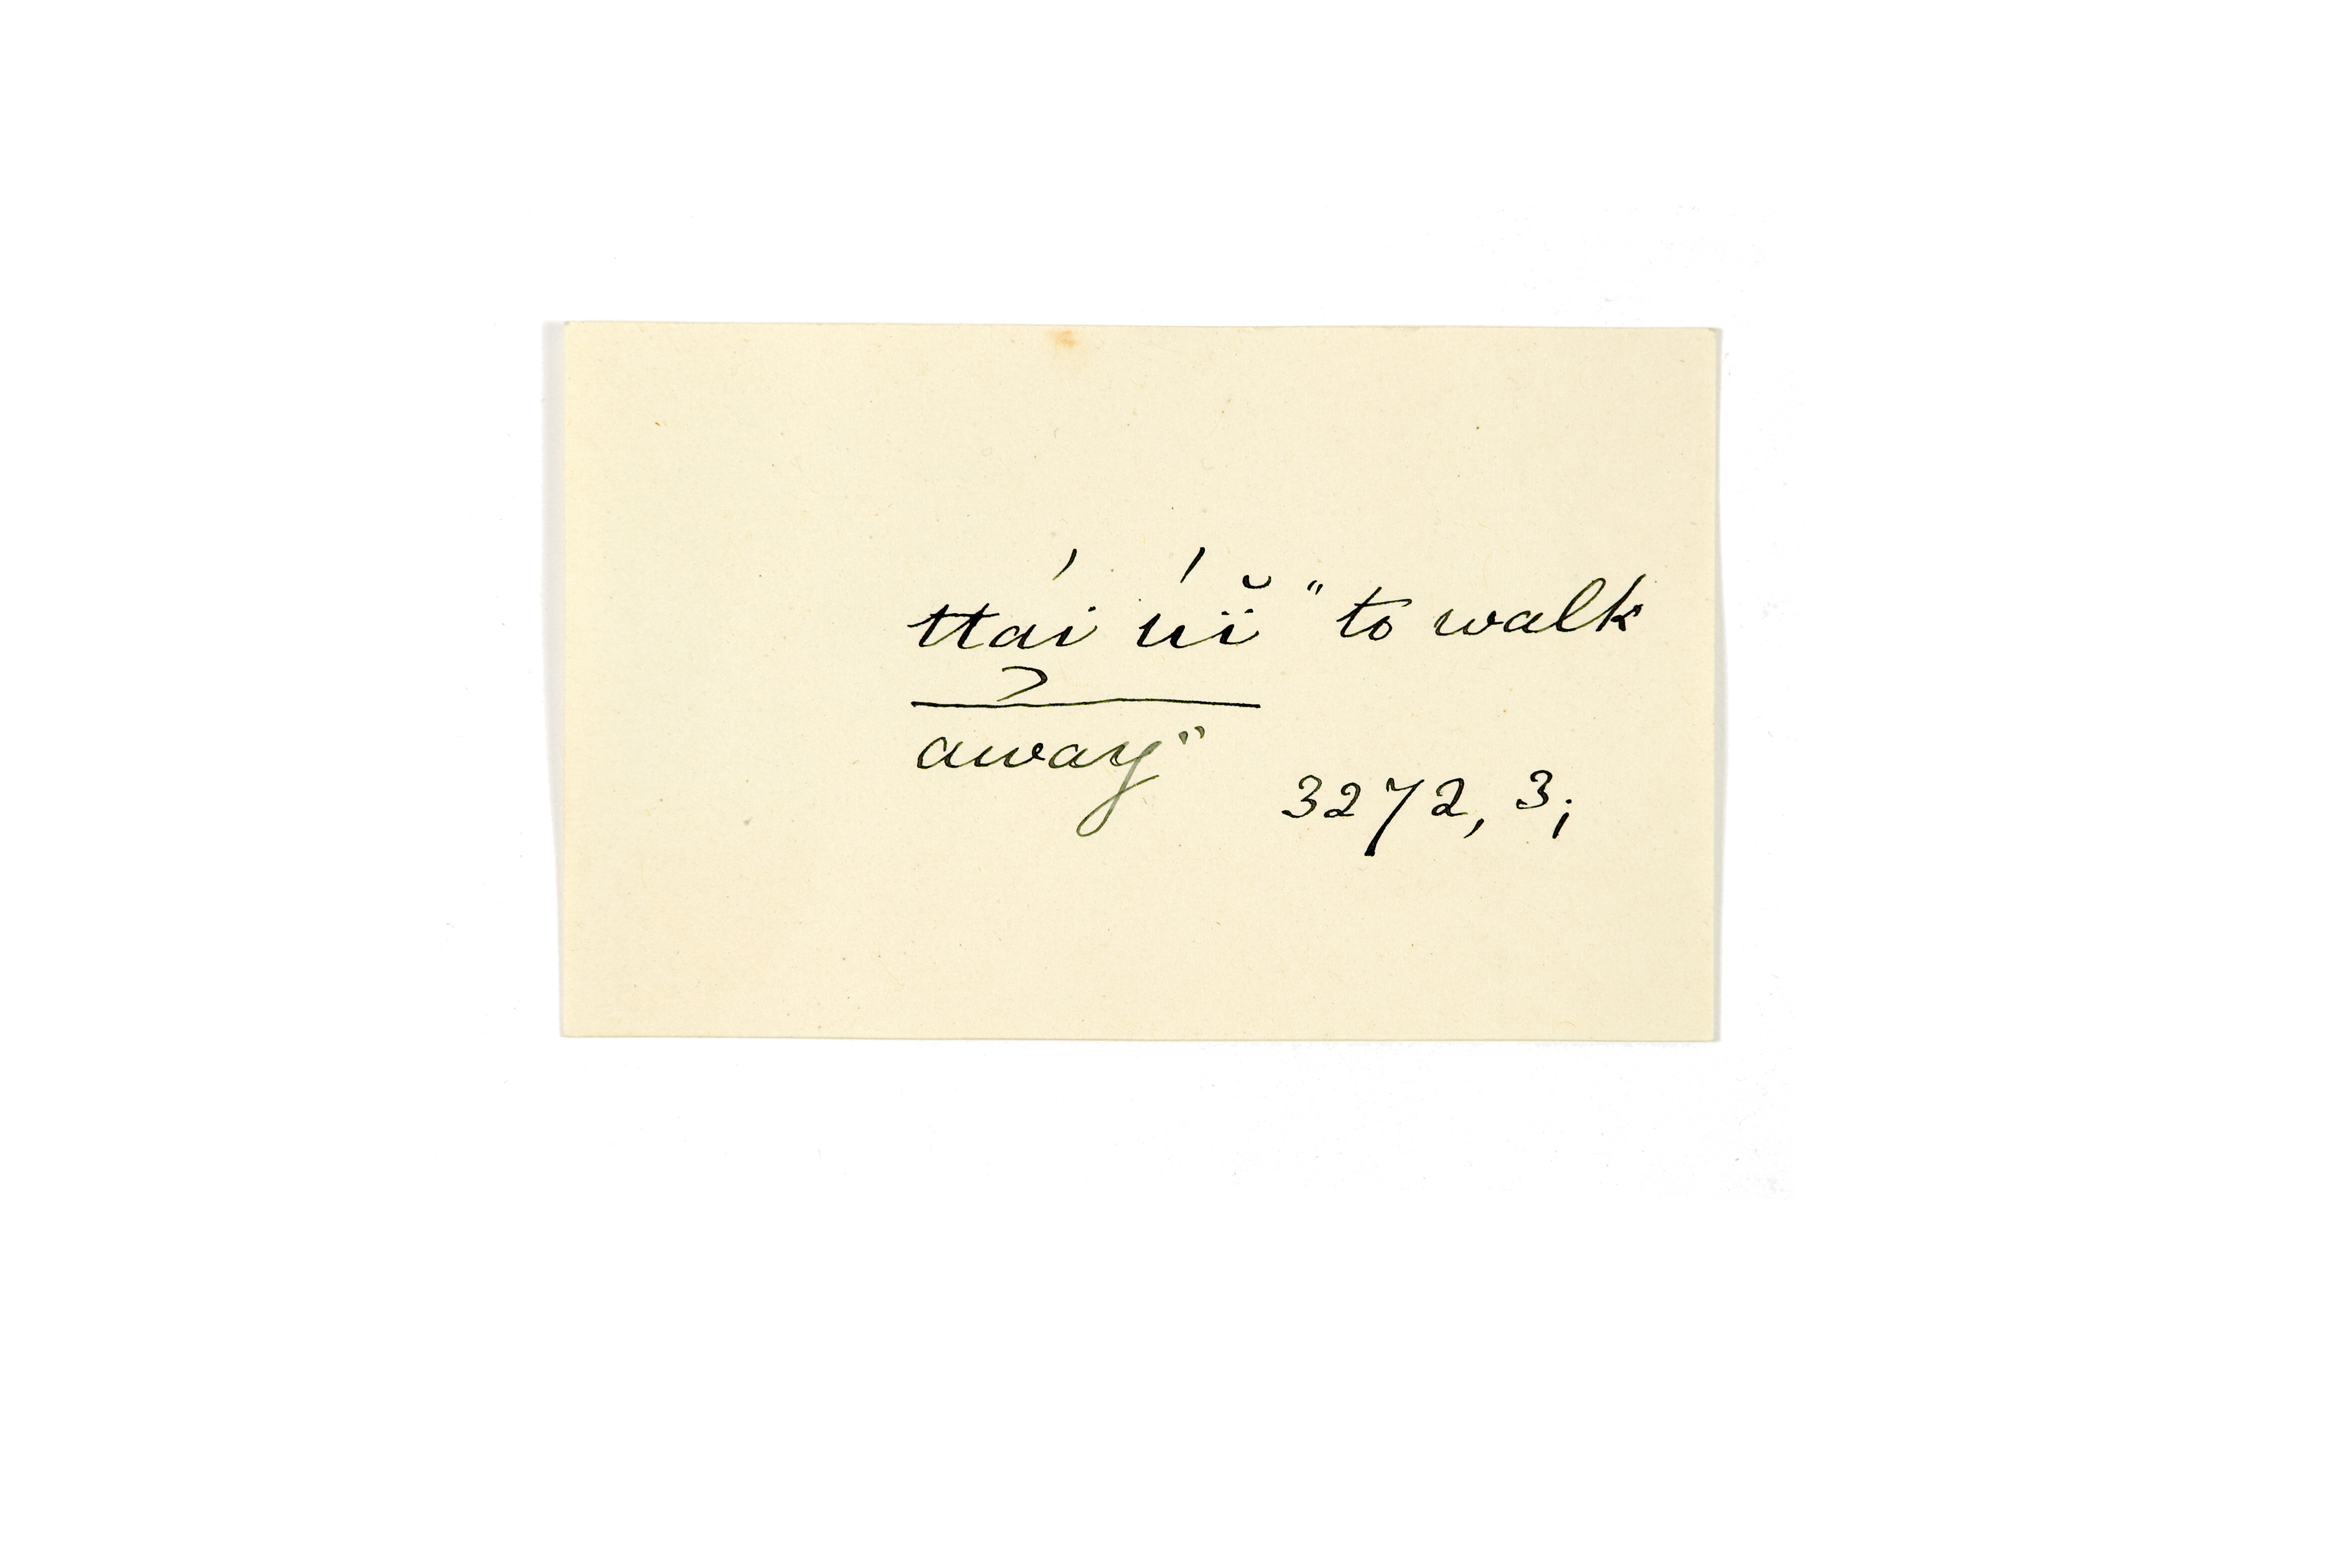 ttái úï̆ "to walk
away"
3272, 3;